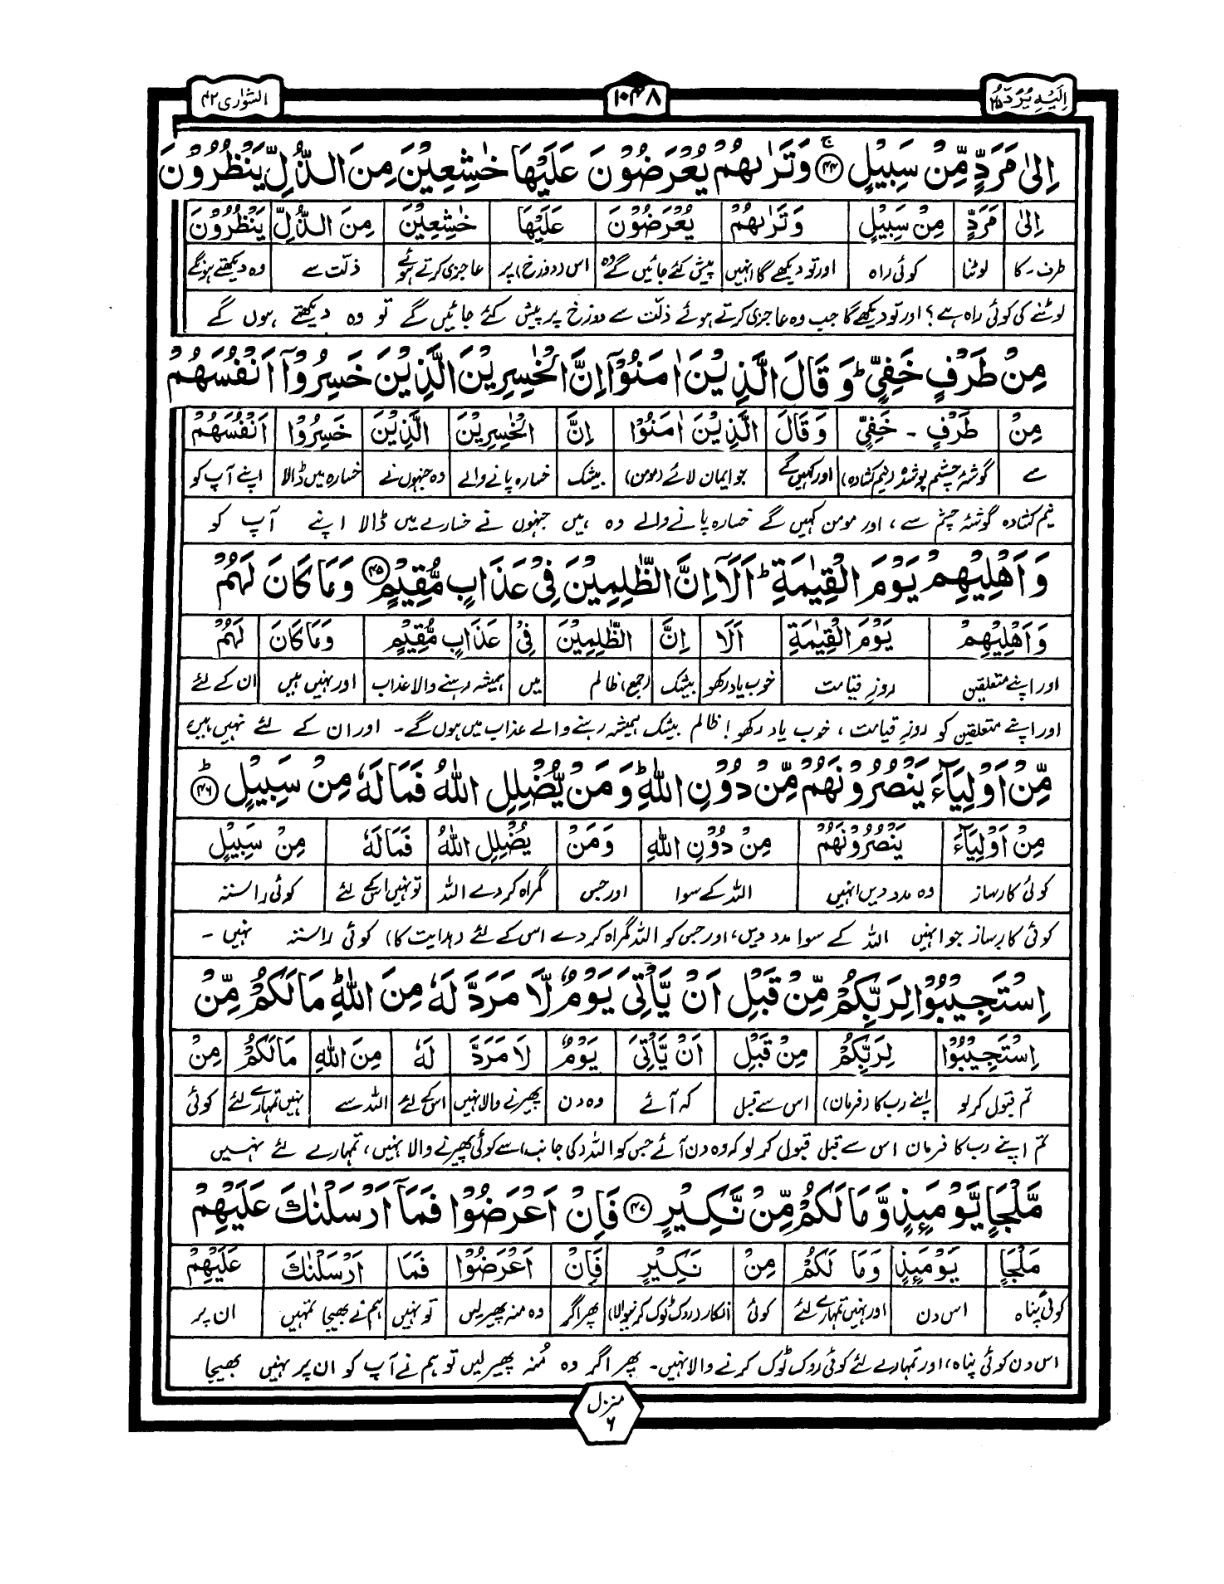 اِلَيْهِ يُرَدُّ ۲۵
۱۰۴۸
الشّوٰرٰی ۴۲
اِلٰى مَرَدٍّ مِّنْ سَبِيْلٍ ۴۴ وَتَرٰىهُمْ يُعْرَضُوْنَ عَلَيْهَا خٰشِعِيْنَ مِنَ الذُّلِّ يَنْظُرُوْنَ
اِلٰى مَرَدٍّ مِنْ سَبِيْلٍ وَتَرٰىهُمْ يُعْرَضُوْنَ عَلَيْهَا خٰشِعِيْنَ مِنَ الذُّلِّ يَنْظُرُوْنَ
طرف - کا لوٹنا کوئی راہ اور تو دیکھے گا انہیں پیش کئے جائیں گے وہ اس (دوزخ) پر عاجزی کرتے ہوئے ذلّت سے وہ دیکھتے ہونگے
لوٹنے کی کوئی راہ ہے؟ اور تو دیکھے گا جب وہ عاجزی کرتے ہوئے ذلّت سے دوزخ پر پیش کئے جائیں گے تو وہ دیکھتے ہوں گے
مِنْ طَرْفٍ خَفِيٍّ ؕ وَقَالَ الَّذِيْنَ اٰمَنُوْٓا اِنَّ الْخٰسِرِيْنَ الَّذِيْنَ خَسِرُوْٓا اَنْفُسَهُمْ
مِنْ طَرْفٍ - خَفِيٍّ وَقَالَ الَّذِيْنَ اٰمَنُوْا اِنَّ الْخٰسِرِيْنَ الَّذِيْنَ خَسِرُوْا اَنْفُسَهُمْ
سے گوشۂ چشم پوشیدہ (نیم کشادہ) اور کہیں گے جو ایمان لائے (مومن) بیشک خسارہ پانے والے وہ جنہوں نے خسارہ میں ڈالا اپنے آپ کو
نیم کشادہ گوشۂ چشم سے، اور مومن کہیں گے خسارہ پانے والے وہ ہیں جنہوں نے خسارے میں ڈالا اپنے آپ کو
وَاَهْلِيْهِمْ يَوْمَ الْقِيٰمَةِ ؕ اَلَآ اِنَّ الظّٰلِمِيْنَ فِيْ عَذَابٍ مُّقِيْمٍ ۴۵ وَمَا كَانَ لَهُمْ
وَاَهْلِيْهِمْ يَوْمَ الْقِيٰمَةِ اَلَا اِنَّ الظّٰلِمِيْنَ فِيْ عَذَابٍ مُّقِيْمٍ وَمَا كَانَ لَهُمْ
اور اپنے متعلقین روزِ قیامت خوب یاد رکھو بیشک (جمع) ظالم میں ہمیشہ رہنے والا عذاب اور نہیں ہیں ان کے لئے
اور اپنے متعلقین کو روزِ قیامت، خوب یاد رکھو! ظالم بیشک ہمیشہ رہنے والے عذاب میں ہوں گے۔ اور ان کے لئے نہیں ہیں
مِّنْ اَوْلِيَآءَ يَنْصُرُوْنَهُمْ مِّنْ دُوْنِ اللّٰهِ ؕ وَمَنْ يُّضْلِلِ اللّٰهُ فَمَا لَهٗ مِنْ سَبِيْلٍ ؕ ۴۶
مِنْ اَوْلِيَآءَ يَنْصُرُوْنَهُمْ مِنْ دُوْنِ اللّٰهِ وَمَنْ يُضْلِلِ اللّٰهُ فَمَا لَهٗ مِنْ سَبِيْلٍ
کوئی کارساز وہ مدد دیں انہیں اللہ کے سوا اور جس گمراہ کردے اللہ تو نہیں اسکے لئے کوئی راستہ
کوئی کارساز جو انہیں اللہ کے سوا مدد دیں، اور جس کو اللہ گمراہ کردے اس کے لئے (ہدایت کا) کوئی راستہ نہیں -
اِسْتَجِيْبُوْا لِرَبِّكُمْ مِّنْ قَبْلِ اَنْ يَّاْتِيَ يَوْمٌ لَّا مَرَدَّ لَهٗ مِنَ اللّٰهِ ؕ مَا لَكُمْ مِّنْ
اِسْتَجِيْبُوْا لِرَبِّكُمْ مِنْ قَبْلِ اَنْ يَّاْتِيَ يَوْمٌ لَا مَرَدَّ لَهٗ مِنَ اللّٰهِ مَا لَكُمْ مِنْ
تم قبول کرلو اپنے رب کا (فرمان) اس سے قبل کہ آئے وہ دن پھیرنے والا نہیں اس کے لئے اللہ سے نہیں تمہارے لئے کوئی
تم اپنے رب کا فرمان اس سے قبل قبول کرلو کہ وہ دن آئے جس کو اللہ (کی جانب) سے کوئی پھیرنے والا نہیں، تمہارے لئے نہیں
مَّلْجَاٍ يَّوْمَئِذٍ وَّمَا لَكُمْ مِّنْ نَّكِيْرٍ ۴۷ فَاِنْ اَعْرَضُوْا فَمَآ اَرْسَلْنٰكَ عَلَيْهِمْ
مَلْجَاٍ يَوْمَئِذٍ وَمَا لَكُمْ مِنْ نَكِيْرٍ فَاِنْ اَعْرَضُوْا فَمَا اَرْسَلْنٰكَ عَلَيْهِمْ
کوئی پناہ اس دن اور نہیں تمہارے لئے کوئی انکار (روک ٹوک کرنیوالا) پھر اگر وہ منہ پھیر لیں تو نہیں ہم نے بھیجا تمہیں ان پر
اس دن کوئی پناہ، اور تمہارے لئے کوئی روک ٹوک کرنے والا نہیں۔ پھر اگر وہ مُنہ پھیر لیں تو ہم نے آپ کو ان پر نہیں بھیجا
منزل ۶